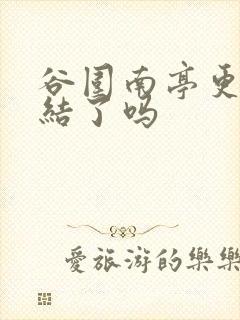 谷围南亭更
結了吗
愛旅游的樂樂